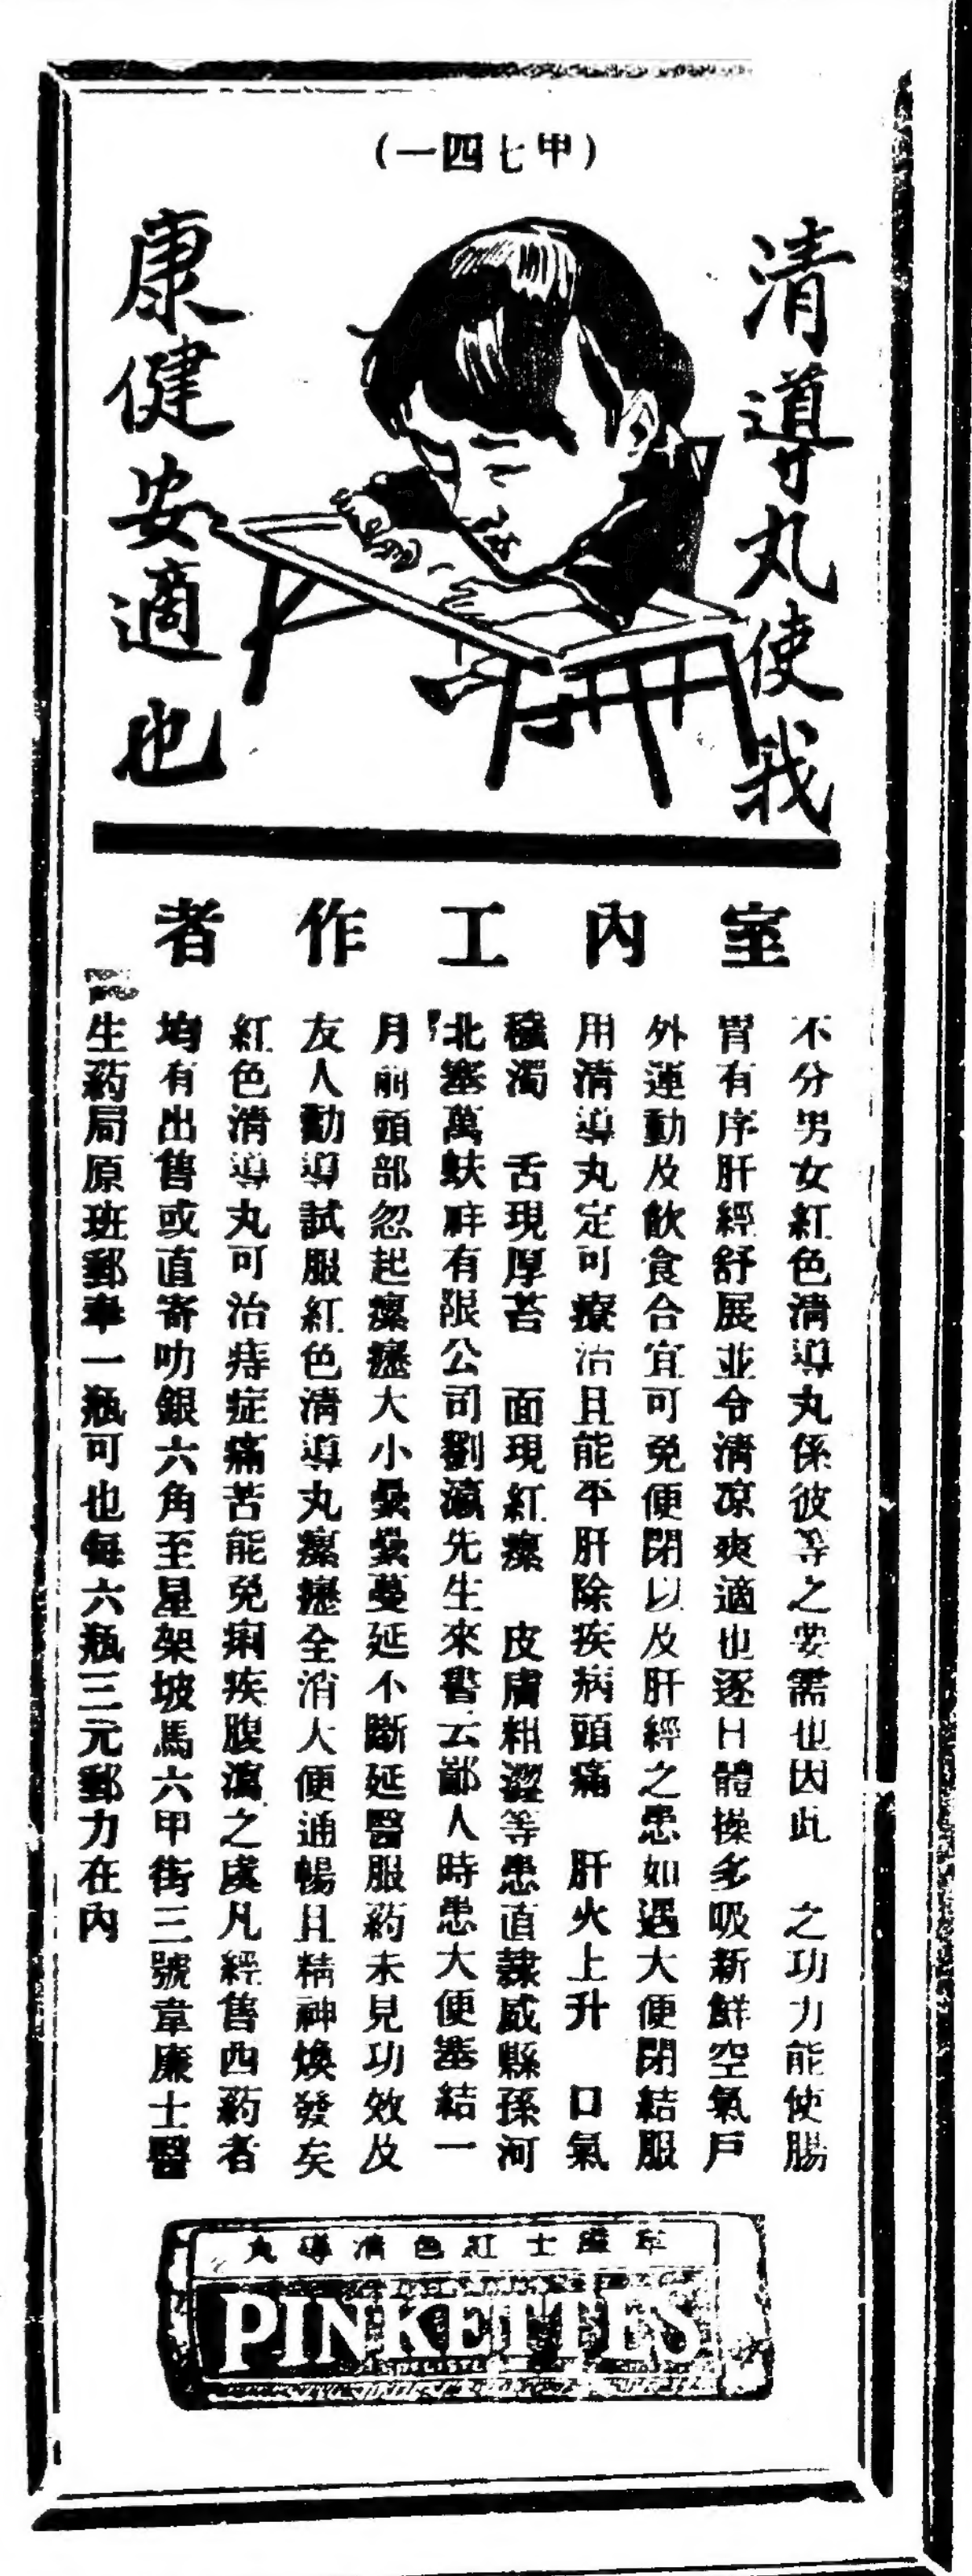 （甲七四一）
清導丸使我
康健安適也
室內工作者
不分男女紅色清導丸係彼等之要需也因此　之功力能使腸
胃有序肝經舒展並令清凉爽適也逐日體操多吸新鮮空氣戶
外運動及飲食合宜可免便閉以及肝經之患如遇大便閉結服
用清導丸定可療治且能平肝除疾病頭痛　肝火上升　口氣
穢濁　舌現厚苔　面現紅瘰　皮膚粗澀等患直隸威縣孫河
北塞萬蚨祥有限公司劉瀛先生來書云鄙人時患大便塞結一
月前頭部忽起瘰癧大小纍纍蔓延不斷延醫服葯未見功效及
友人勸導試服紅色清導丸瘰癧全消大便通暢且精神煥發矣
紅色清導丸可治痔症痛苦能免痢疾腹瀉之虞凡經售西葯者
均有出售或直寄叻銀六角至星架坡馬六甲街三號韋廉士醫
生葯局原班郵奉一瓶可也每六瓶三元郵力在內
韋廉士紅色清導丸
PINKETTES